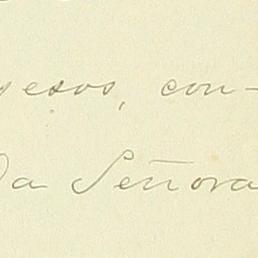 sesos, con-
Da Señora